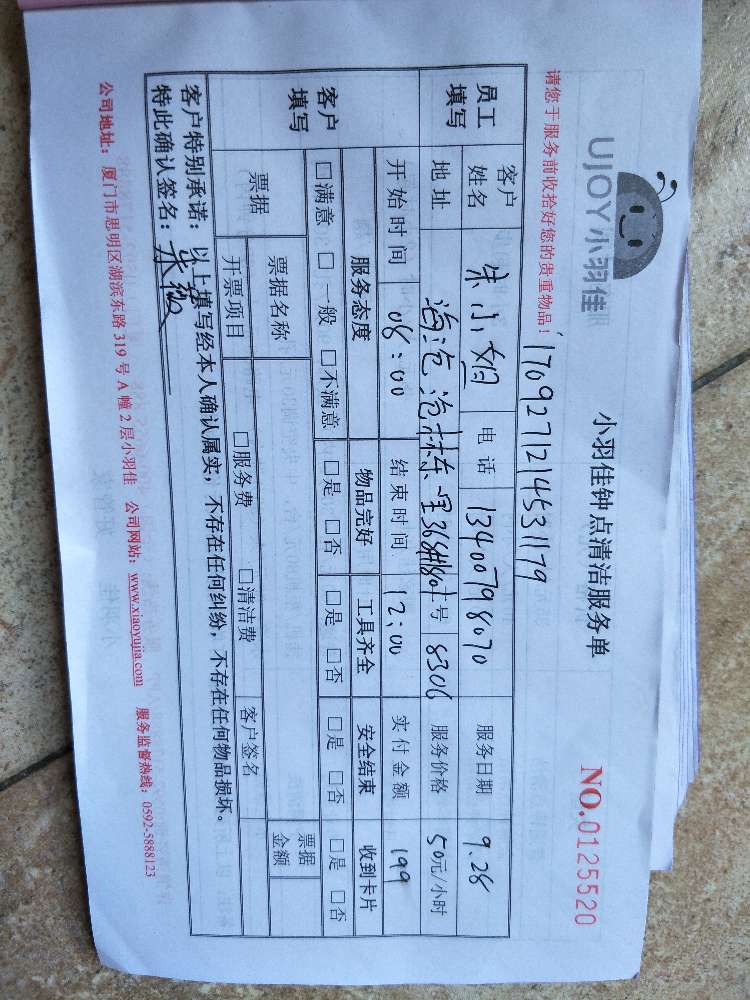 UJOY小羽佳
小羽佳钟点清洁服务单
NO.0125520
请您于服务前收拾好您的贵重物品！
170927121453179
员工填写
客户姓名
朱小姐
电话
13400798070
服务日期
9.28
地址
工号
8306
服务价格
50元/小时
开始时间
08:00
结束时间
12:00
实付金额
199
客户填写
服务态度
物品完好
工具齐全
安全结束
收到卡片
□满意 □一般 □不满意
□是 □否
□是 □否
□是 □否
□是 □否
票据
票据名称
票据金额
开票项目
□服务费 □清洁费
客户签名
客户特别承诺：以上填写经本人确认属实，不存在任何纠纷，不存在任何物品损坏。
特此确认签名：
公司地址：厦门市思明区湖滨东路 319 号 A 幢 2 层小羽佳 公司网站：www.xiaoyujia.com 服务监督热线：0592-5888123